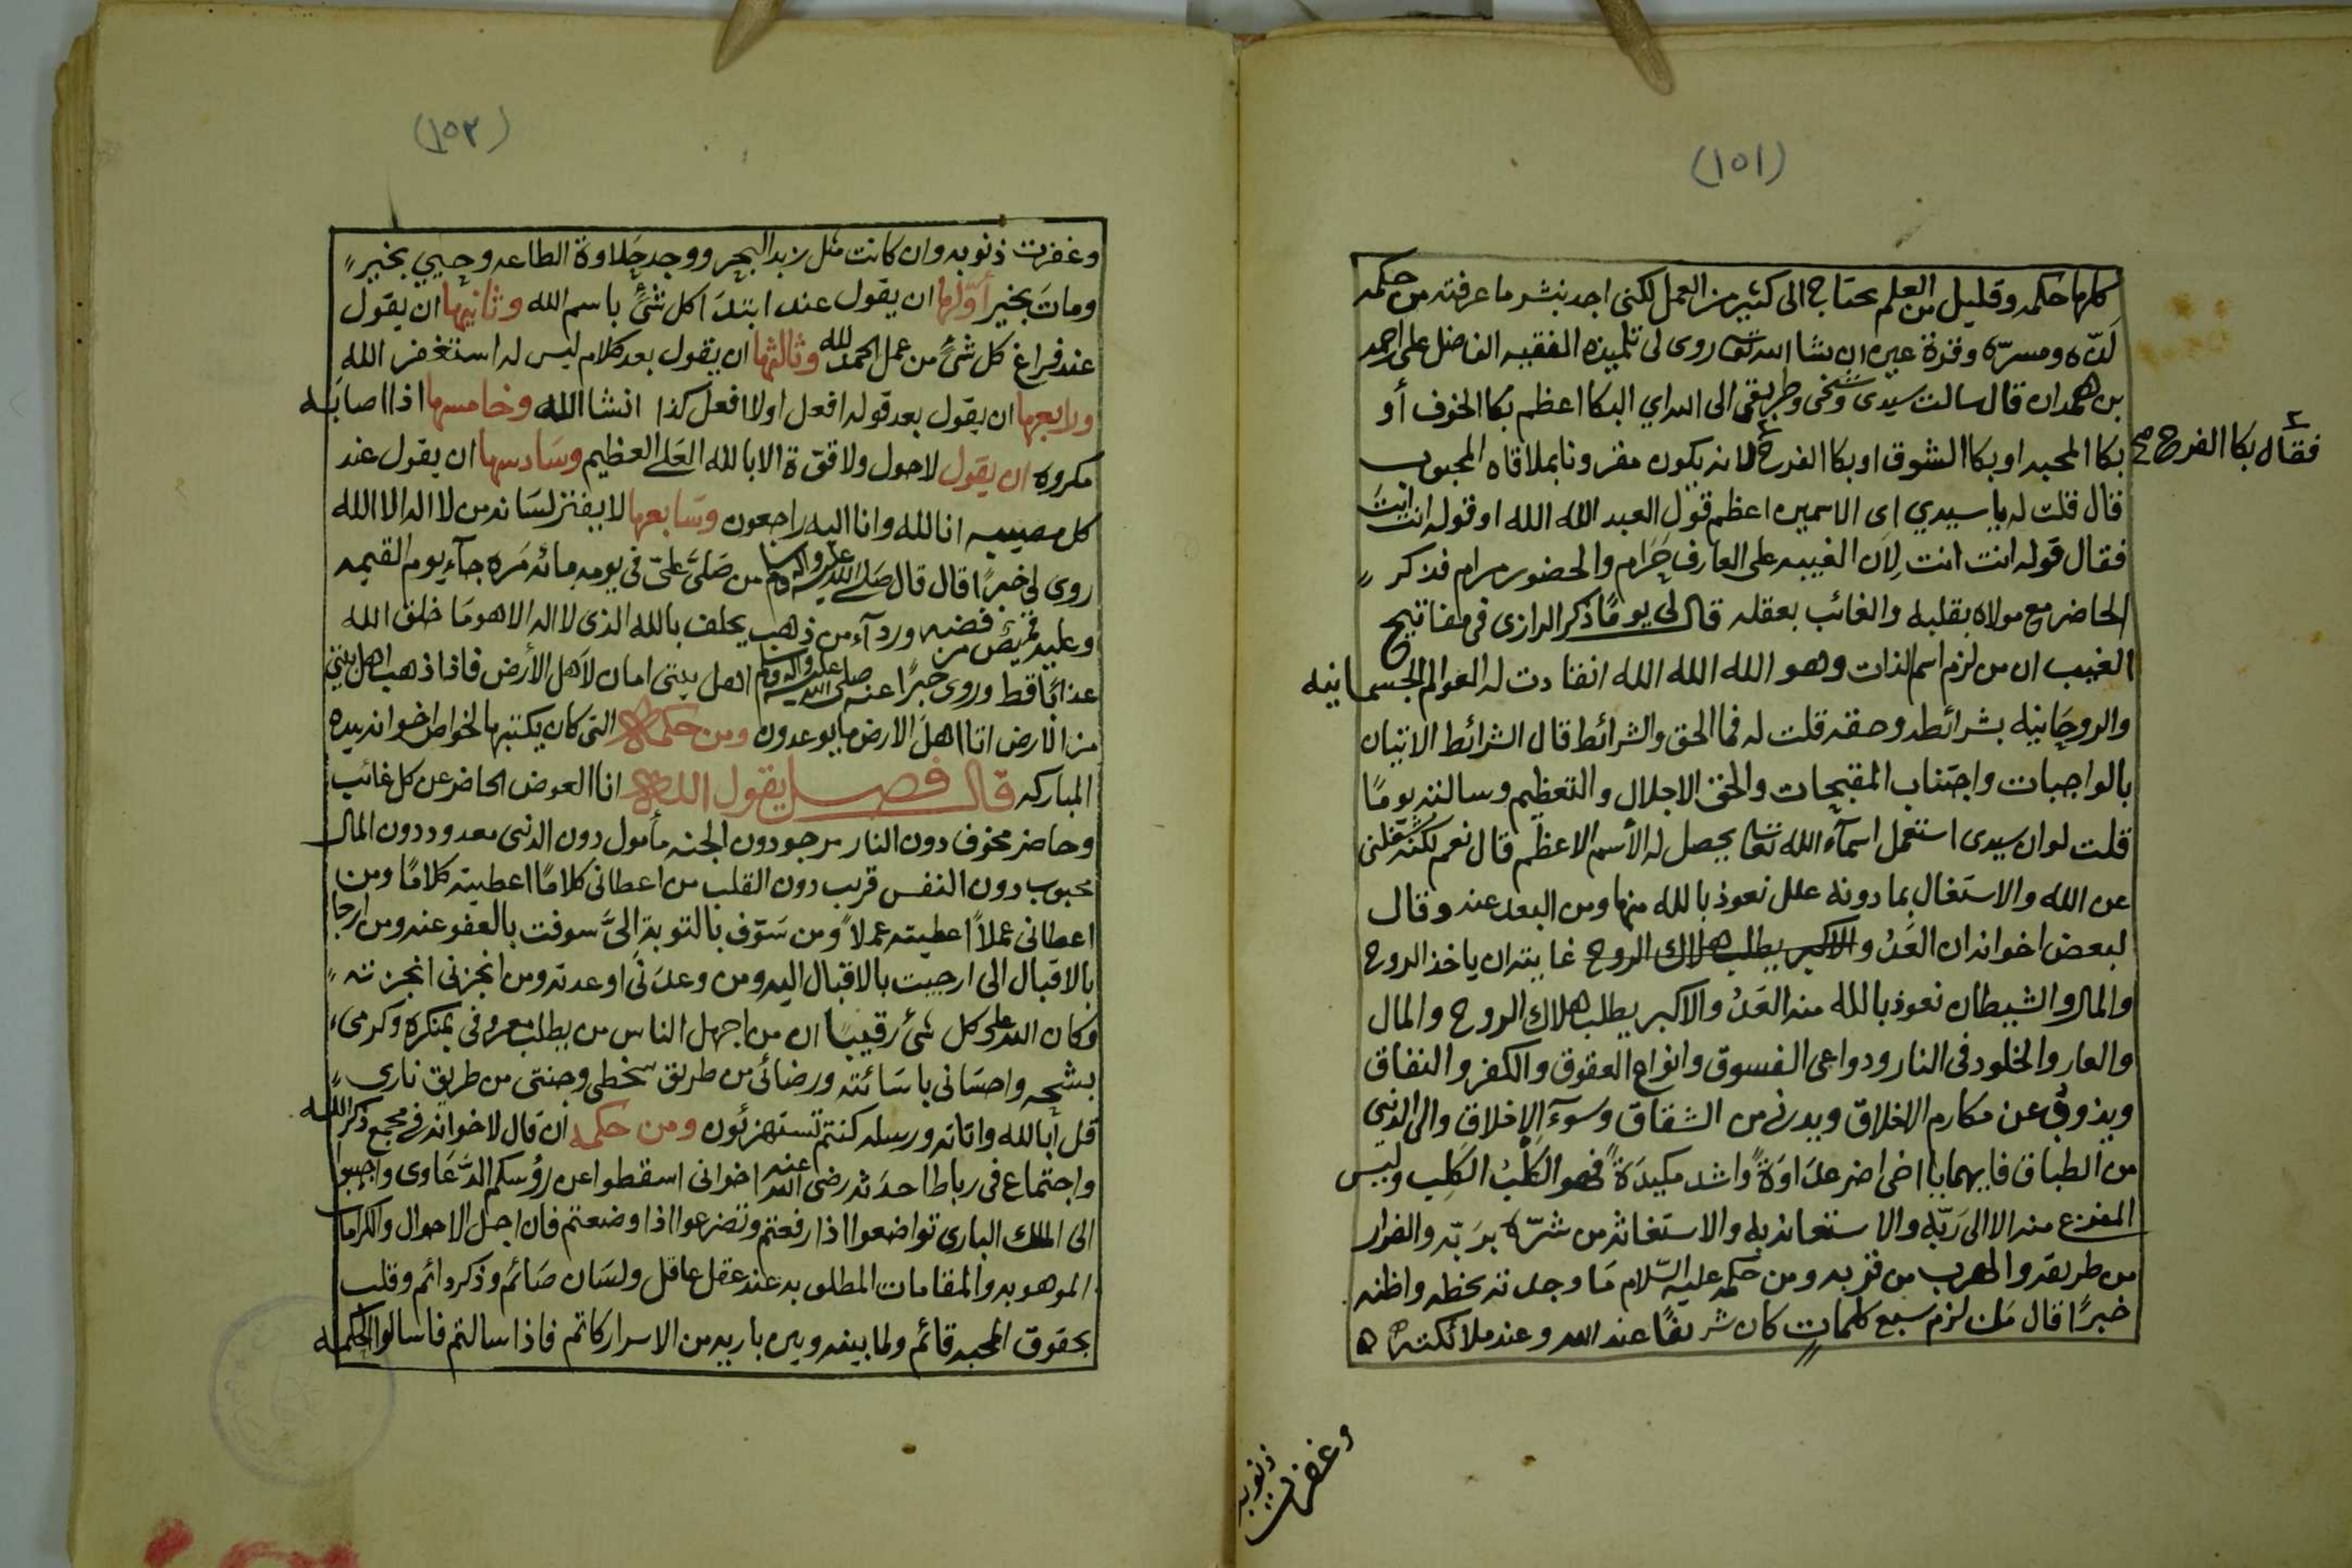 (١٥١)
كلها حكمه وقليل من العلم يحتاج الى كثير من العمل لكنى اجد بنشر ما عرفته من حكمه
لذه ومسره وقرة عين ان شا الله تعالى روى لى تلميذه الفقيه الفاضل على احمد
بن همدان قال سالت سيدى وشيخى وطريقى الى الله اي البكا اعظم بكا الخوف أو
بكا المحبه او بكا الشوق او بكا الفرح لانه يكون مقرونا بملاقاه المحبوب
فقال بكا الفرح صح
قال قلت له يا سيدي اى الاسمين اعظم قول العبد الله الله او قوله انت انت
فقال قوله انت انت لان الغيبه على العارف حرام والحضور مرام فذكر
الحاضر مع مولاه بقلبه والغائب بعقله قال لى يومًا ذكر الرازى فى مفاتيح
الغيب ان من لزم اسم الذات وهو الله الله الله انقادت له العوالم الجسمانيه
والروحانيه بشرائطه وحقه قلت له فما الحق والشرائط قال الشرائط الاتيان
بالواجبات واجتناب المقبحات والحق الاجلال والتعظيم وسالته يومًا
قلت لو ان سيدى استعمل اسمآء الله تعالى يحصل له الأسم الاعظم قال نعم لكنه
عن الله والاستغال بما دونه علل نعوذ بالله منها ومن البعد عنه وقال
لبعض اخوانه ان العدُ والاكبر يطلب هلاك الروح غايته ان ياخذ الروح
والمال والشيطان نعوذ بالله منه العدُ والاكبر يطلب هلاك الروح والمال
والعار والخلود فى النار ودواعى الفسوق وانواع العقوق والكفر والنفاق
عن مكارم الاخلاق ويدنى من الشقاق وسوء الاخلاق والى الدنى
من الطباق فايهما يا اخى اضر عداوةً واشد مكيدةً فهو الكلبُ الكلب وليس
المفزع منه الا الى ربّه والاستعانه به والاستغاثه من شرّه بربّه والفرار
من طريقه والهرب من قربه ومن حكمه عليه السّلام مَا وجدته بخطه واظنه
خبرًا قال مَن لزم سبع كلمات كان شريفًا عند الله وعند ملائكته
وغفرت
ذنوبه
(١٥٢)
وغفرت ذنوبه وان كانت مثل زبد البحر ووجد حلاوة الطاعه وحيي بخير
ومات بخير أوّلها ان يقول عند ابتدَا كل شئ باسم الله وثانيها ان يقول
عند فراغ كل شئ من عمل الحمد لله وثالثها ان يقول بعد كلام ليس له استغفر الله
ورابعها ان يقول بعد قوله افعل اولا افعل كذا انشا الله وخامسها اذا اصابه
مكروه ان يقول لاحول ولا قوّة الا بالله العَلي العظيم وسَادسها ان يقول عند
كل مصيبه انا لله وانا اليه راجعون وسَابعها لا يفتر لسَانه من لا اله الا الله
روى لى خبرًا قال قال صَلى الله عليه واله وسلم من صَلىَّ علىّ فى يومه مائه مَره جآء يوم القيمه
وعليه قميصٌ من فضه وردآء من ذهب يحلف بالله الذى لا اله الا هو مَا خلق الله
عذابًا قط وروى خبرًا عنه صلى الله عليه واله وسلم اهل بيتى امان لأهل الأرض فاذا ذهب اهل بيتى
من الارض اتا اهلَ الارض ما يوعدون ومن حكمه التى كان يكتبها لخواص اخوانه بيده
المباركه قال فصل يقول الله انا العوض الحاضر عن كل غائب
وحاضر مخوف دون النار مرجو دون الجنه مأمول دون الدنى معدود دون المال
محبوب دون النفس قريب دون القلب من اعطانى كلامًا اعطيته كلامًا ومن
اعطانى عملاً اعطيته عملاً ومن سَوّف بالتوبة الىَّ سوفت بالعفو عنه ومن ارجا
بالاقبال الى ارجيت بالاقبال اليه ومن وعدَنى اوعدته ومن انجزنى انجزته
وكان الله على كل شئ رقيبًا ان من اجهل الناس من يطلب معروفى بمنكره وكرمى
بشحه واحسَانى باسَائته ورضائى من طريق سخطى وجنتى من طريق نارى
قل أبالله واياته ورسله كنتم تستهزئون ومن حكمه ان قال لاخوانه فى مجمع ذكر الله
واجتماع فى رباط احدثه رضى الله عنه اخوانى اسقطوا عن رؤسكم الدَّعَاوى واجيبوا
الى الملك البارى تواضعوا اذا رفعتم وتضرعوا اذا وضعتم فان اجل الاحوال والكرامات
الموهوبه والمقامات المطلوبه عند عقل عاقل ولسَان صَائم وذكر دائم وقلب
بحقوق المحبه قائم ولما بينه وبين باريه من الاسرار كاتم فاذا سالتم فاسالوا الحكمه